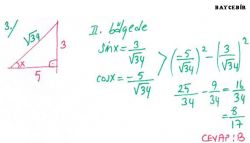 BAYCEBİR
3./
√34
3
x
5
II. bölgede
sinx = 3/√34
cosx = -5/√34
> (-5/√34)² - (3/√34)²
25/34 - 9/34 = 16/34
= 8/17
CEVAP: B